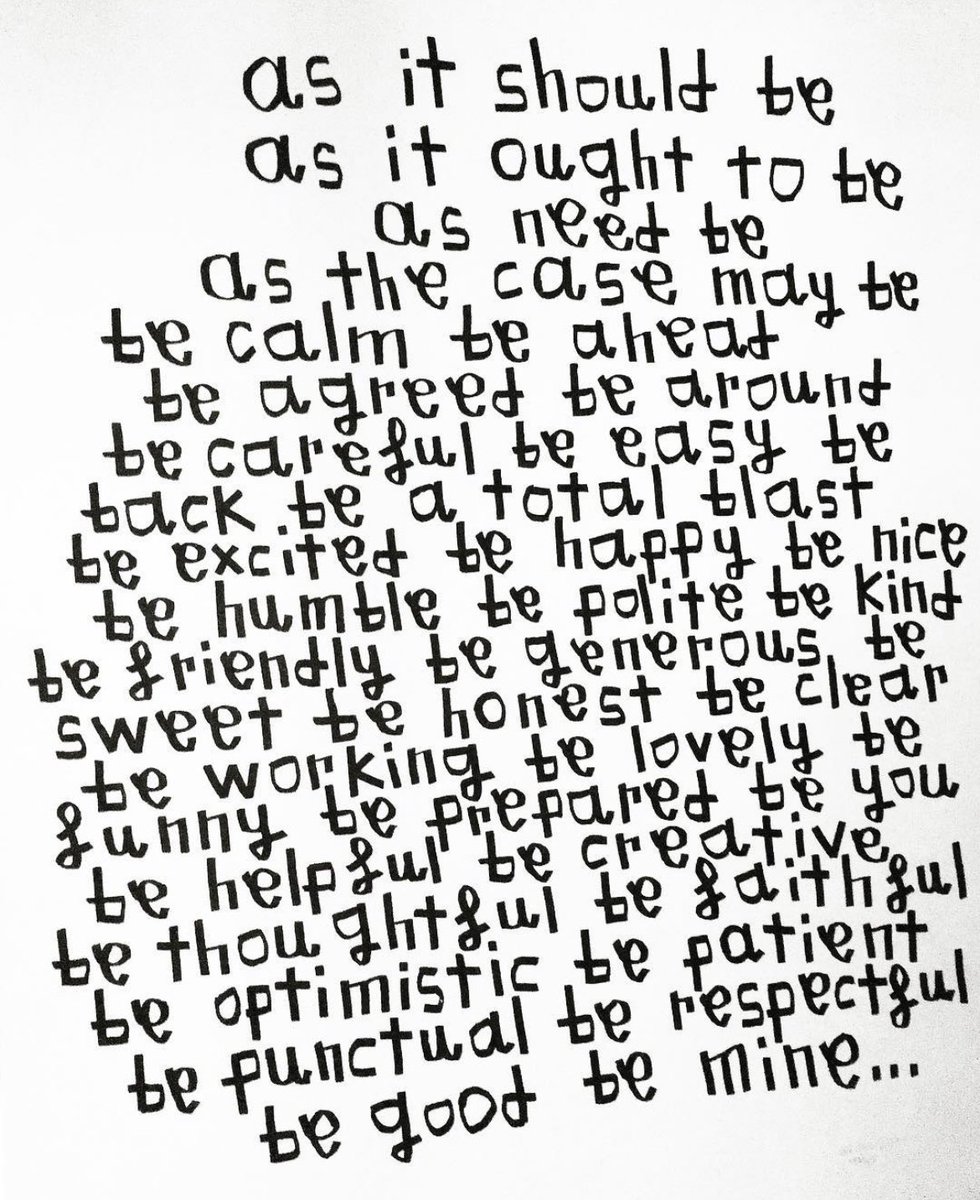 as it should be
as it ought to be
as need be
as the case may be
be calm be ahead
be agreed be around
be careful be easy be
back be a total blast
be excited be happy be nice
be humble be polite be kind
be friendly be generous be
sweet be honest be clear
be working be lovely be
funny be prepared be you
be helpful be creative
be thoughtful be faithful
be optimistic be patient
be punctual be respectful
be good be mine...